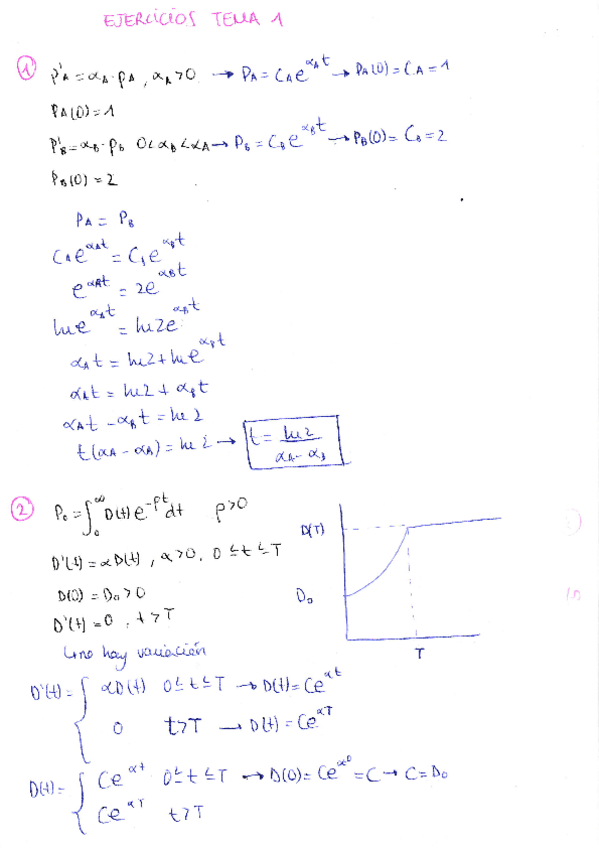 EJERCICIOS TEMA 1
① p'A = αA · pA , αA > 0 → PA = CA e^{αA t} → PA(0) = CA = 1
PA(0) = 1
P'B = αB · PB 0 < αB < αA → PB = CB e^{αB t} → PB(0) = CB = 2
PB(0) = 2
PA = PB
CA e^{αA t} = C1 e^{αB t}
e^{αA t} = 2e^{αB t}
ln e^{αA t} = ln 2e^{αB t}
αA t = ln 2 + ln e^{αB t}
αA t = ln 2 + αB t
αA t - αB t = ln 2
t(αA - αB) = ln 2 → t = ln 2 / (αA - αB)
② P0 = ∫_0^∞ D(t) e^{-ρt} dt ρ > 0
D'(t) = αD(t) , α > 0, 0 ≤ t ≤ T
D(0) = D0 > 0
D'(t) = 0 , t > T
↳ no hay variación
D(T)
D0
T
D'(t) = { αD(t) 0 ≤ t ≤ T → D(t) = Ce^{αt}
0 t > T → D(t) = Ce^{αT}
D(t) = { Ce^{αt} 0 ≤ t ≤ T → D(0) = Ce^{α0} = C → C = D0
Ce^{αT} t > T